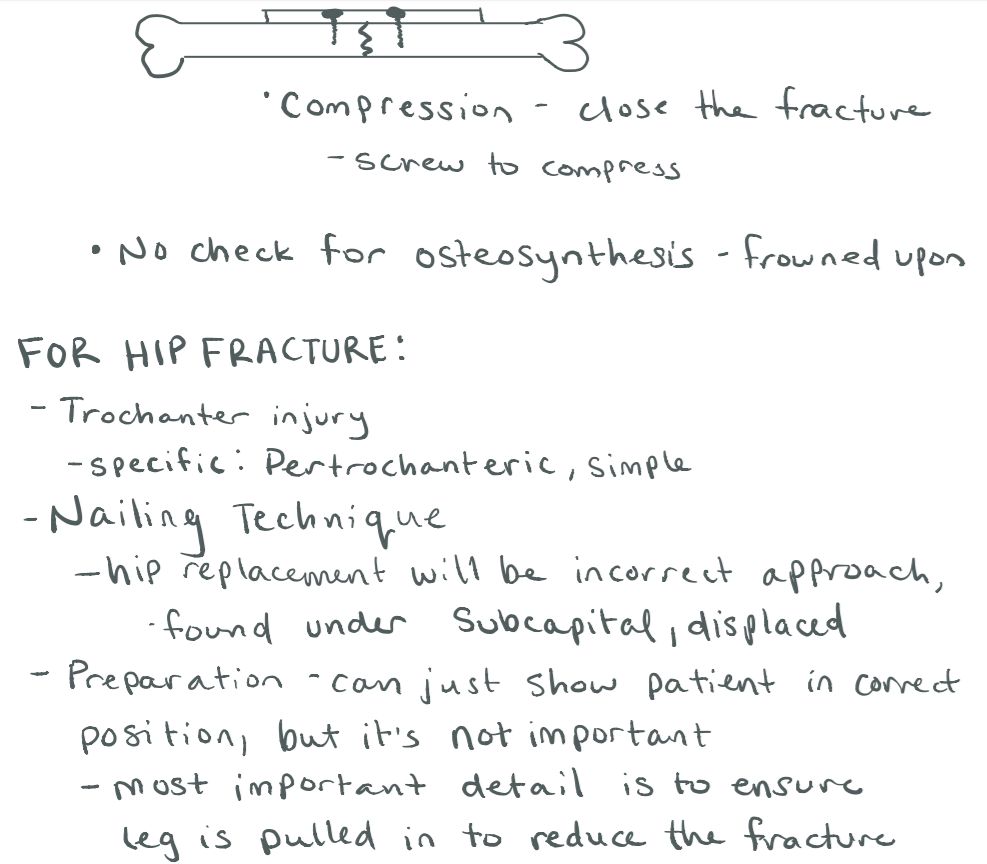 • Compression - close the fracture
- screw to compress
• No check for osteosynthesis - frowned upon
FOR HIP FRACTURE:
- Trochanter injury
- specific: Pertrochanteric, simple
- Nailing Technique
- hip replacement will be incorrect approach,
· found under Subcapital, displaced
- Preparation - can just show patient in correct
position, but it's not important
- most important detail is to ensure
leg is pulled in to reduce the fracture